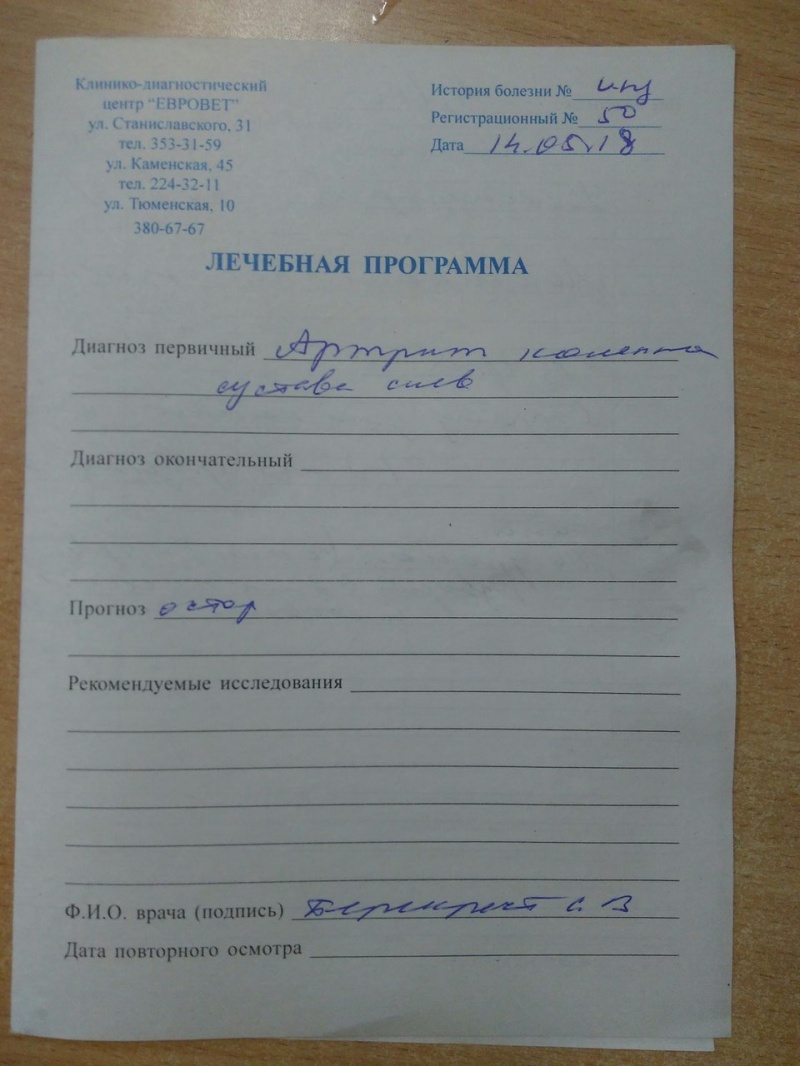 Клинико-диагностический
центр "ЕВРОВЕТ"
ул. Станиславского, 31
тел. 353-31-59
ул. Каменская, 45
тел. 224-32-11
ул. Тюменская, 10
380-67-67
История болезни №
Регистрационный № 50
Дата 14.05.18
ЛЕЧЕБНАЯ ПРОГРАММА
Диагноз первичный Артрит коленна
сустава слев
Диагноз окончательный
Прогноз остор
Рекомендуемые исследования
Ф.И.О. врача (подпись) С. В
Дата повторного осмотра